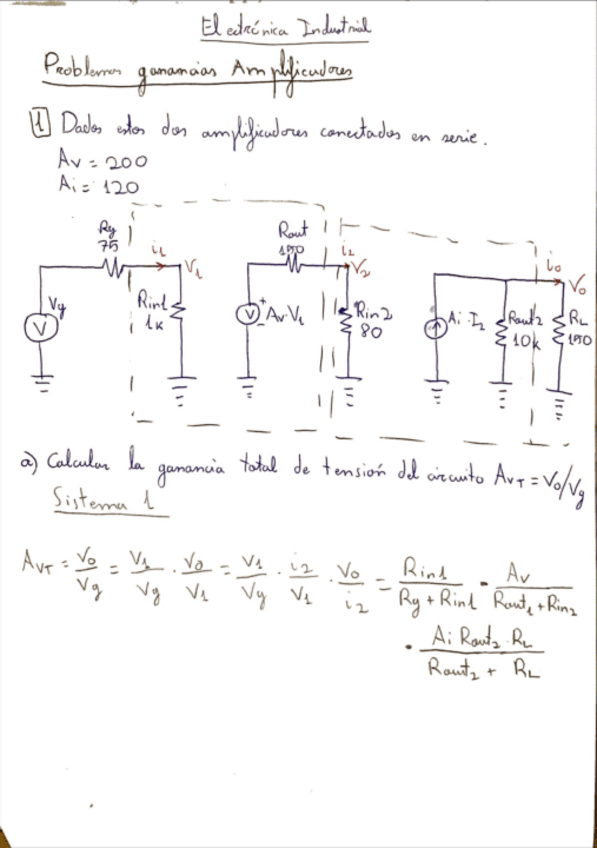 Electrónica Industrial
Problemas ganancias Amplificadores
1 Dados estos dos amplificadores conectados en serie.
Av = 200
Ai = 120
Rg
75
i1
V1
Rout
150
i2
V2
io
Vo
Vg
V
Rin1
1k
V
+
-
Av·V1
Rin2
80
Ai·I2
Rout2
10k
RL
150
a) Calcular la ganancia total de tensión del circuito AvT = Vo/Vg
Sistema 1
AvT = Vo/Vg = V1/Vg · Vo/V1 = V1/Vg · i2/V1 · Vo/i2 = Rin1/(Rg + Rin1) · Av/(Rout1 + Rin2)
· Ai Rout2 · RL/(Rout2 + RL)